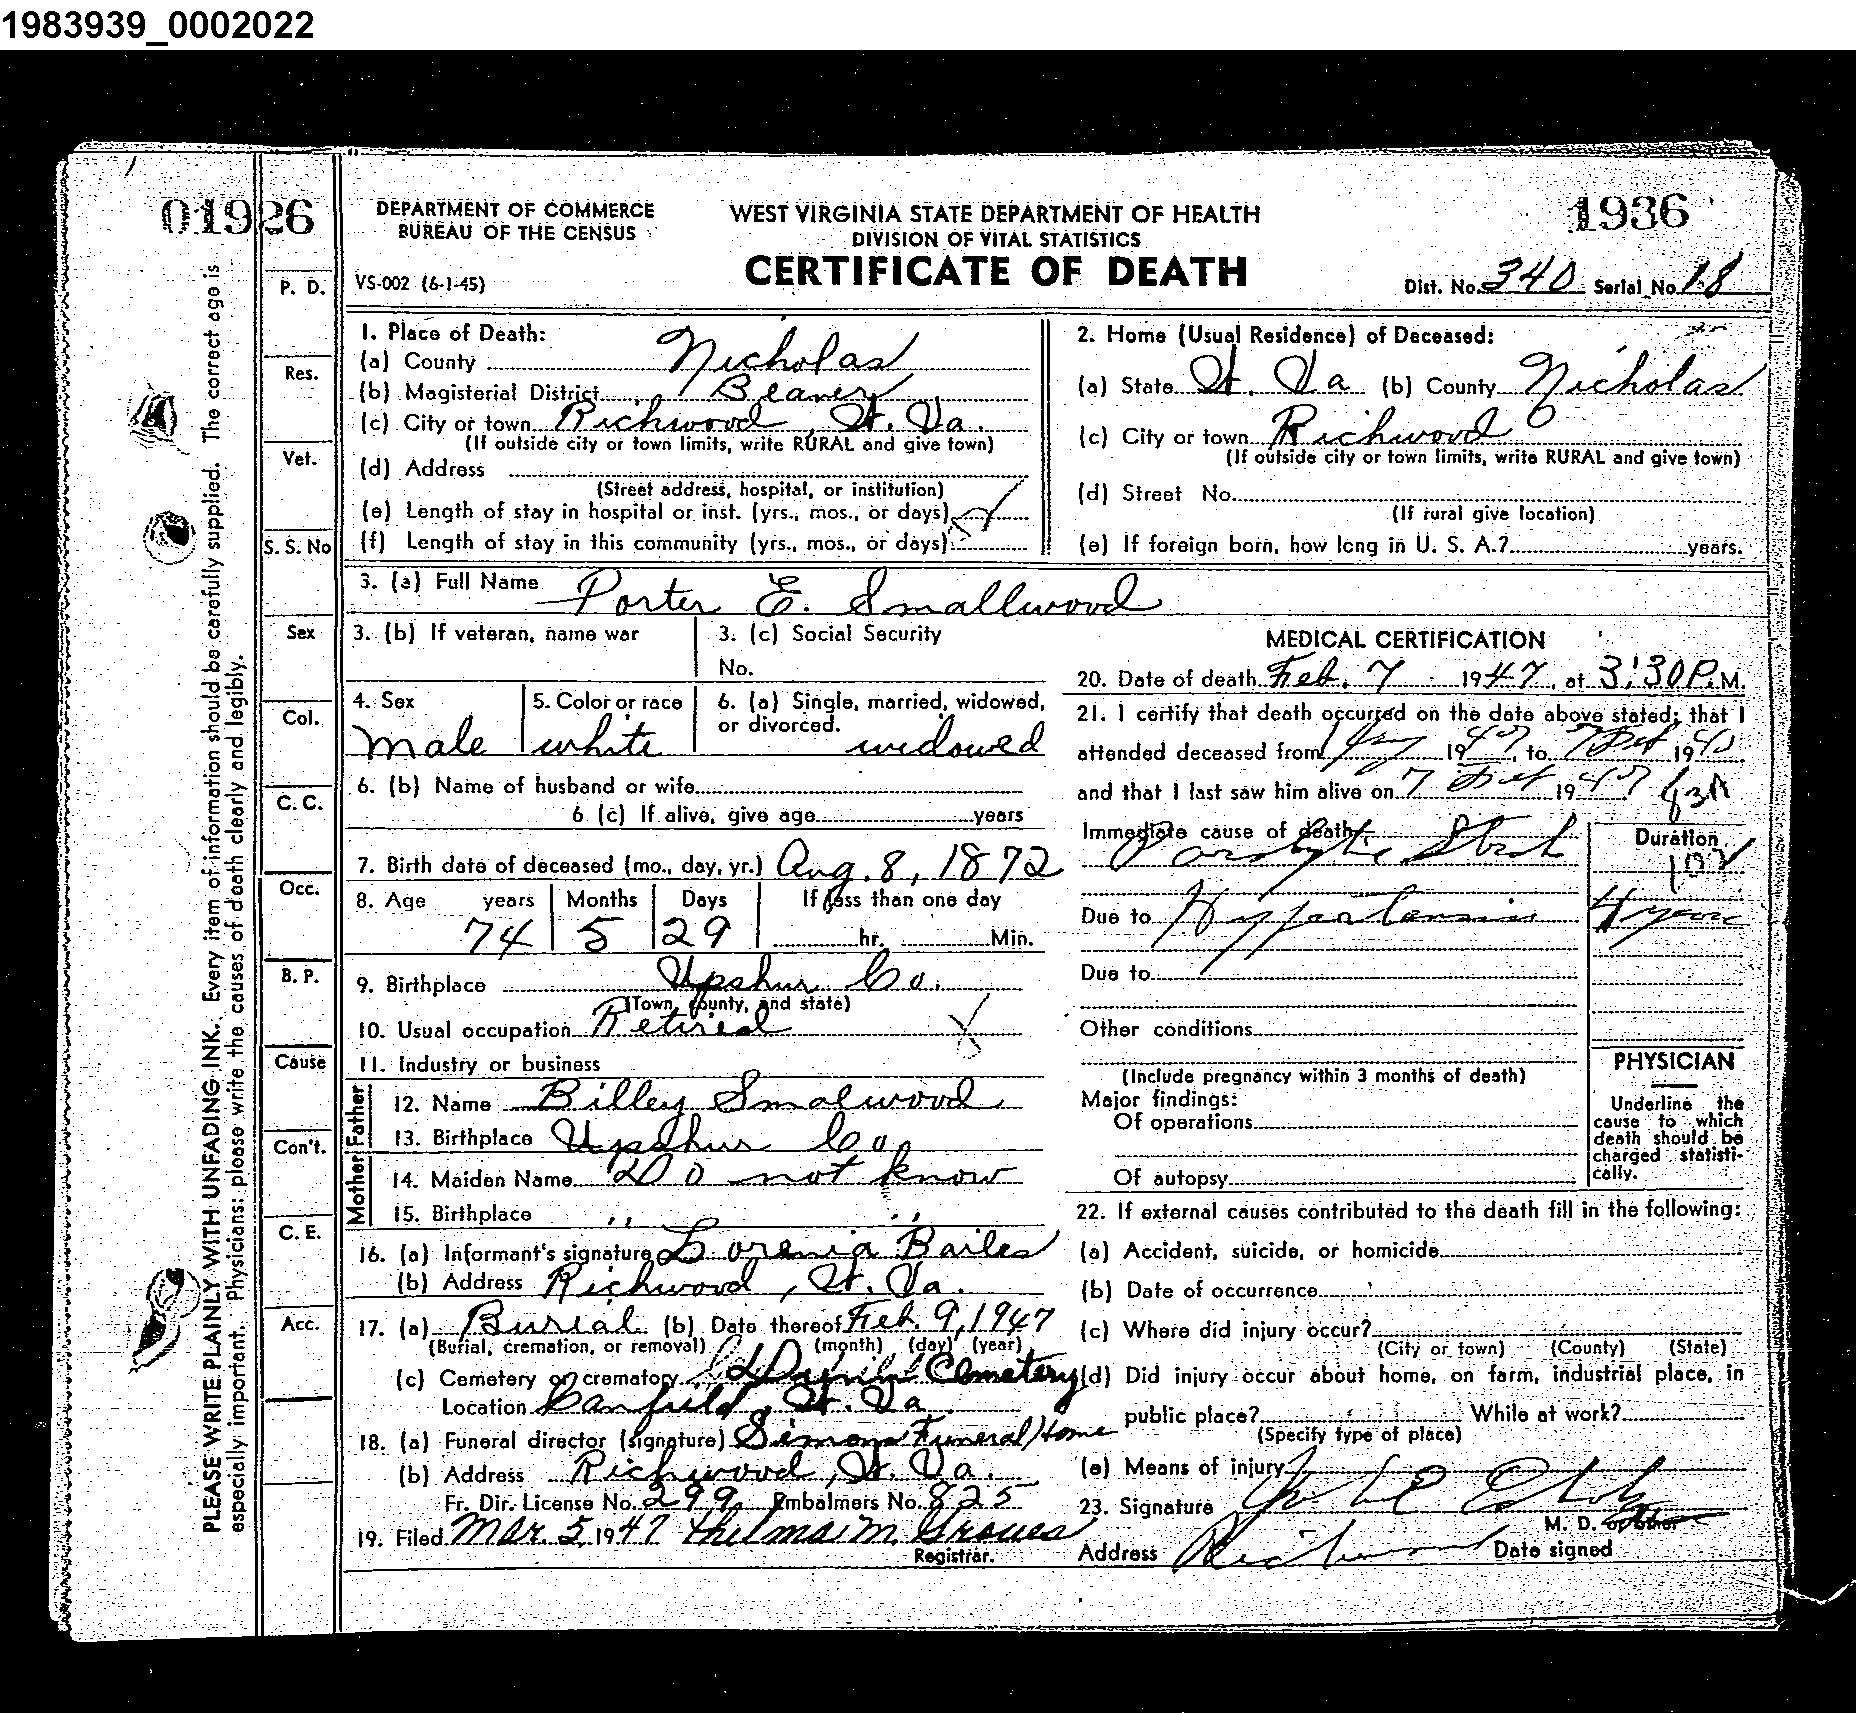 1983939_0002022
01926
DEPARTMENT OF COMMERCE
BUREAU OF THE CENSUS
VS-002 (6-1-45)
WEST VIRGINIA STATE DEPARTMENT OF HEALTH
DIVISION OF VITAL STATISTICS
CERTIFICATE OF DEATH
1936
Dist. No. 340 Serial No. 18
PLEASE WRITE PLAINLY WITH UNFADING INK. Every item of information should be carefully supplied. The correct age is
especially important. Physicians: please write the causes of death clearly and legibly.
P. D.
Res.
Vet.
S. S. No
Sex
Col.
C. C.
Occ.
B. P.
Cause
Con't.
C. E.
Acc.
1. Place of Death:
(a) County Nicholas
(b) Magisterial District Beaver
(c) City or town Richwood, W. Va.
(If outside city or town limits, write RURAL and give town)
(d) Address
(Street address, hospital, or institution)
(e) Length of stay in hospital or inst. (yrs., mos., or days)
(f) Length of stay in this community (yrs., mos., or days)
2. Home (Usual Residence) of Deceased:
(a) State W. Va (b) County Nicholas
(c) City or town Richwood
(If outside city or town limits, write RURAL and give town)
(d) Street No.
(If rural give location)
(e) If foreign born, how long in U. S. A.? years.
3. (a) Full Name Porter E. Smallwood
3. (b) If veteran, name war
3. (c) Social Security
No.
4. Sex
male
5. Color or race
white
6. (a) Single, married, widowed,
or divorced.
widowed
6. (b) Name of husband or wife
6 (c) If alive, give age years
7. Birth date of deceased (mo., day, yr.) Aug. 8, 1872
8. Age years Months Days If less than one day
74 5 29 hr. Min.
9. Birthplace Upshur Co.
(Town, county, and state)
10. Usual occupation Retired
11. Industry or business
Father
12. Name Billey Smalwood
13. Birthplace Upshur Co
Mother
14. Maiden Name Do not know
15. Birthplace " "
16. (a) Informant's signature Lorenia Bailes
(b) Address Richwood, W. Va.
17. (a) Burial (b) Date thereof Feb. 9, 1947
(Burial, cremation, or removal) (month) (day) (year)
(c) Cemetery or crematory Cemetery
Location Canfield, W. Va
18. (a) Funeral director (signature) Simons Funeral Home
(b) Address Richwood, W. Va.
Fr. Dir. License No. 299 Embalmers No. 825
19. Filed Mar. 5, 1947 Thelma M. Groves
Registrar.
MEDICAL CERTIFICATION
20. Date of death Feb. 7 1947, at 3:30 P.M.
21. I certify that death occurred on the date above stated; that I
attended deceased from 1 Jan 1947, to 7 Feb 19
and that I last saw him alive on 7 Feb 1947
Immediate cause of death
Paralytic Stroke
Duration
Due to Hypertension 4 years
Due to
Other conditions
(Include pregnancy within 3 months of death)
Major findings:
Of operations
Of autopsy
PHYSICIAN
Underline the
cause to which
death should be
charged statisti-
cally.
22. If external causes contributed to the death fill in the following:
(a) Accident, suicide, or homicide
(b) Date of occurrence
(c) Where did injury occur?
(City or town) (County) (State)
(d) Did injury occur about home, on farm, industrial place, in
public place? While at work?
(Specify type of place)
(e) Means of injury
23. Signature
M. D. or other
Address Richwood Date signed